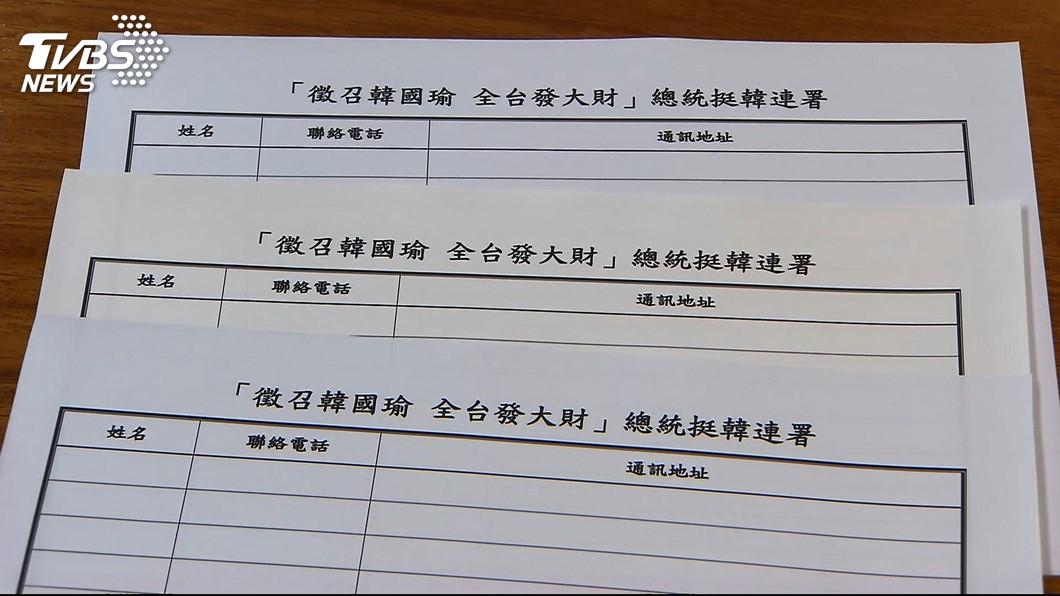 TVBS
NEWS
「徵召韓國瑜 全台發大財」總統挺韓連署
姓名 聯絡電話 通訊地址
「徵召韓國瑜 全台發大財」總統挺韓連署
姓名 聯絡電話 通訊地址
「徵召韓國瑜 全台發大財」總統挺韓連署
姓名 聯絡電話 通訊地址